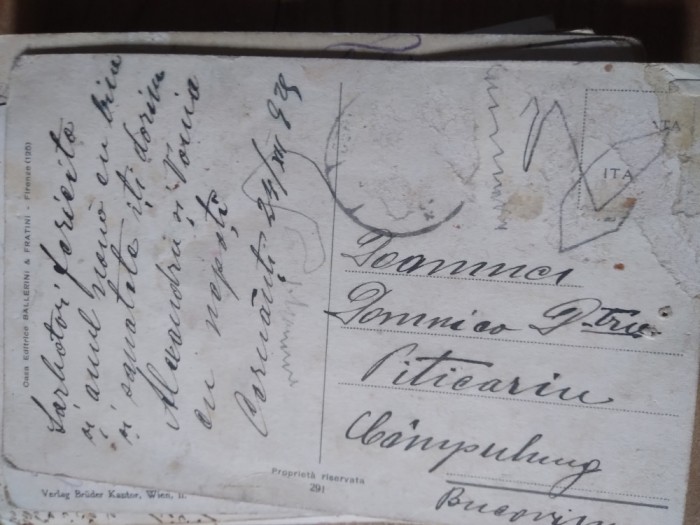 Casa Editrice BALLERINI & FRATINI - Firenze (195)
Sărbători fericite
și anul nou cu bine
și sanatate iți dorim
Alexandru și Voria
cu nepoți
Cernăuți 24/XII 929
ITA
ITA
Doamnei
Domnica D-tru
Piticariu
Câmpulung
Bucovin
Proprietà riservata
291
Verlag Brüder Kantor, Wien, II.